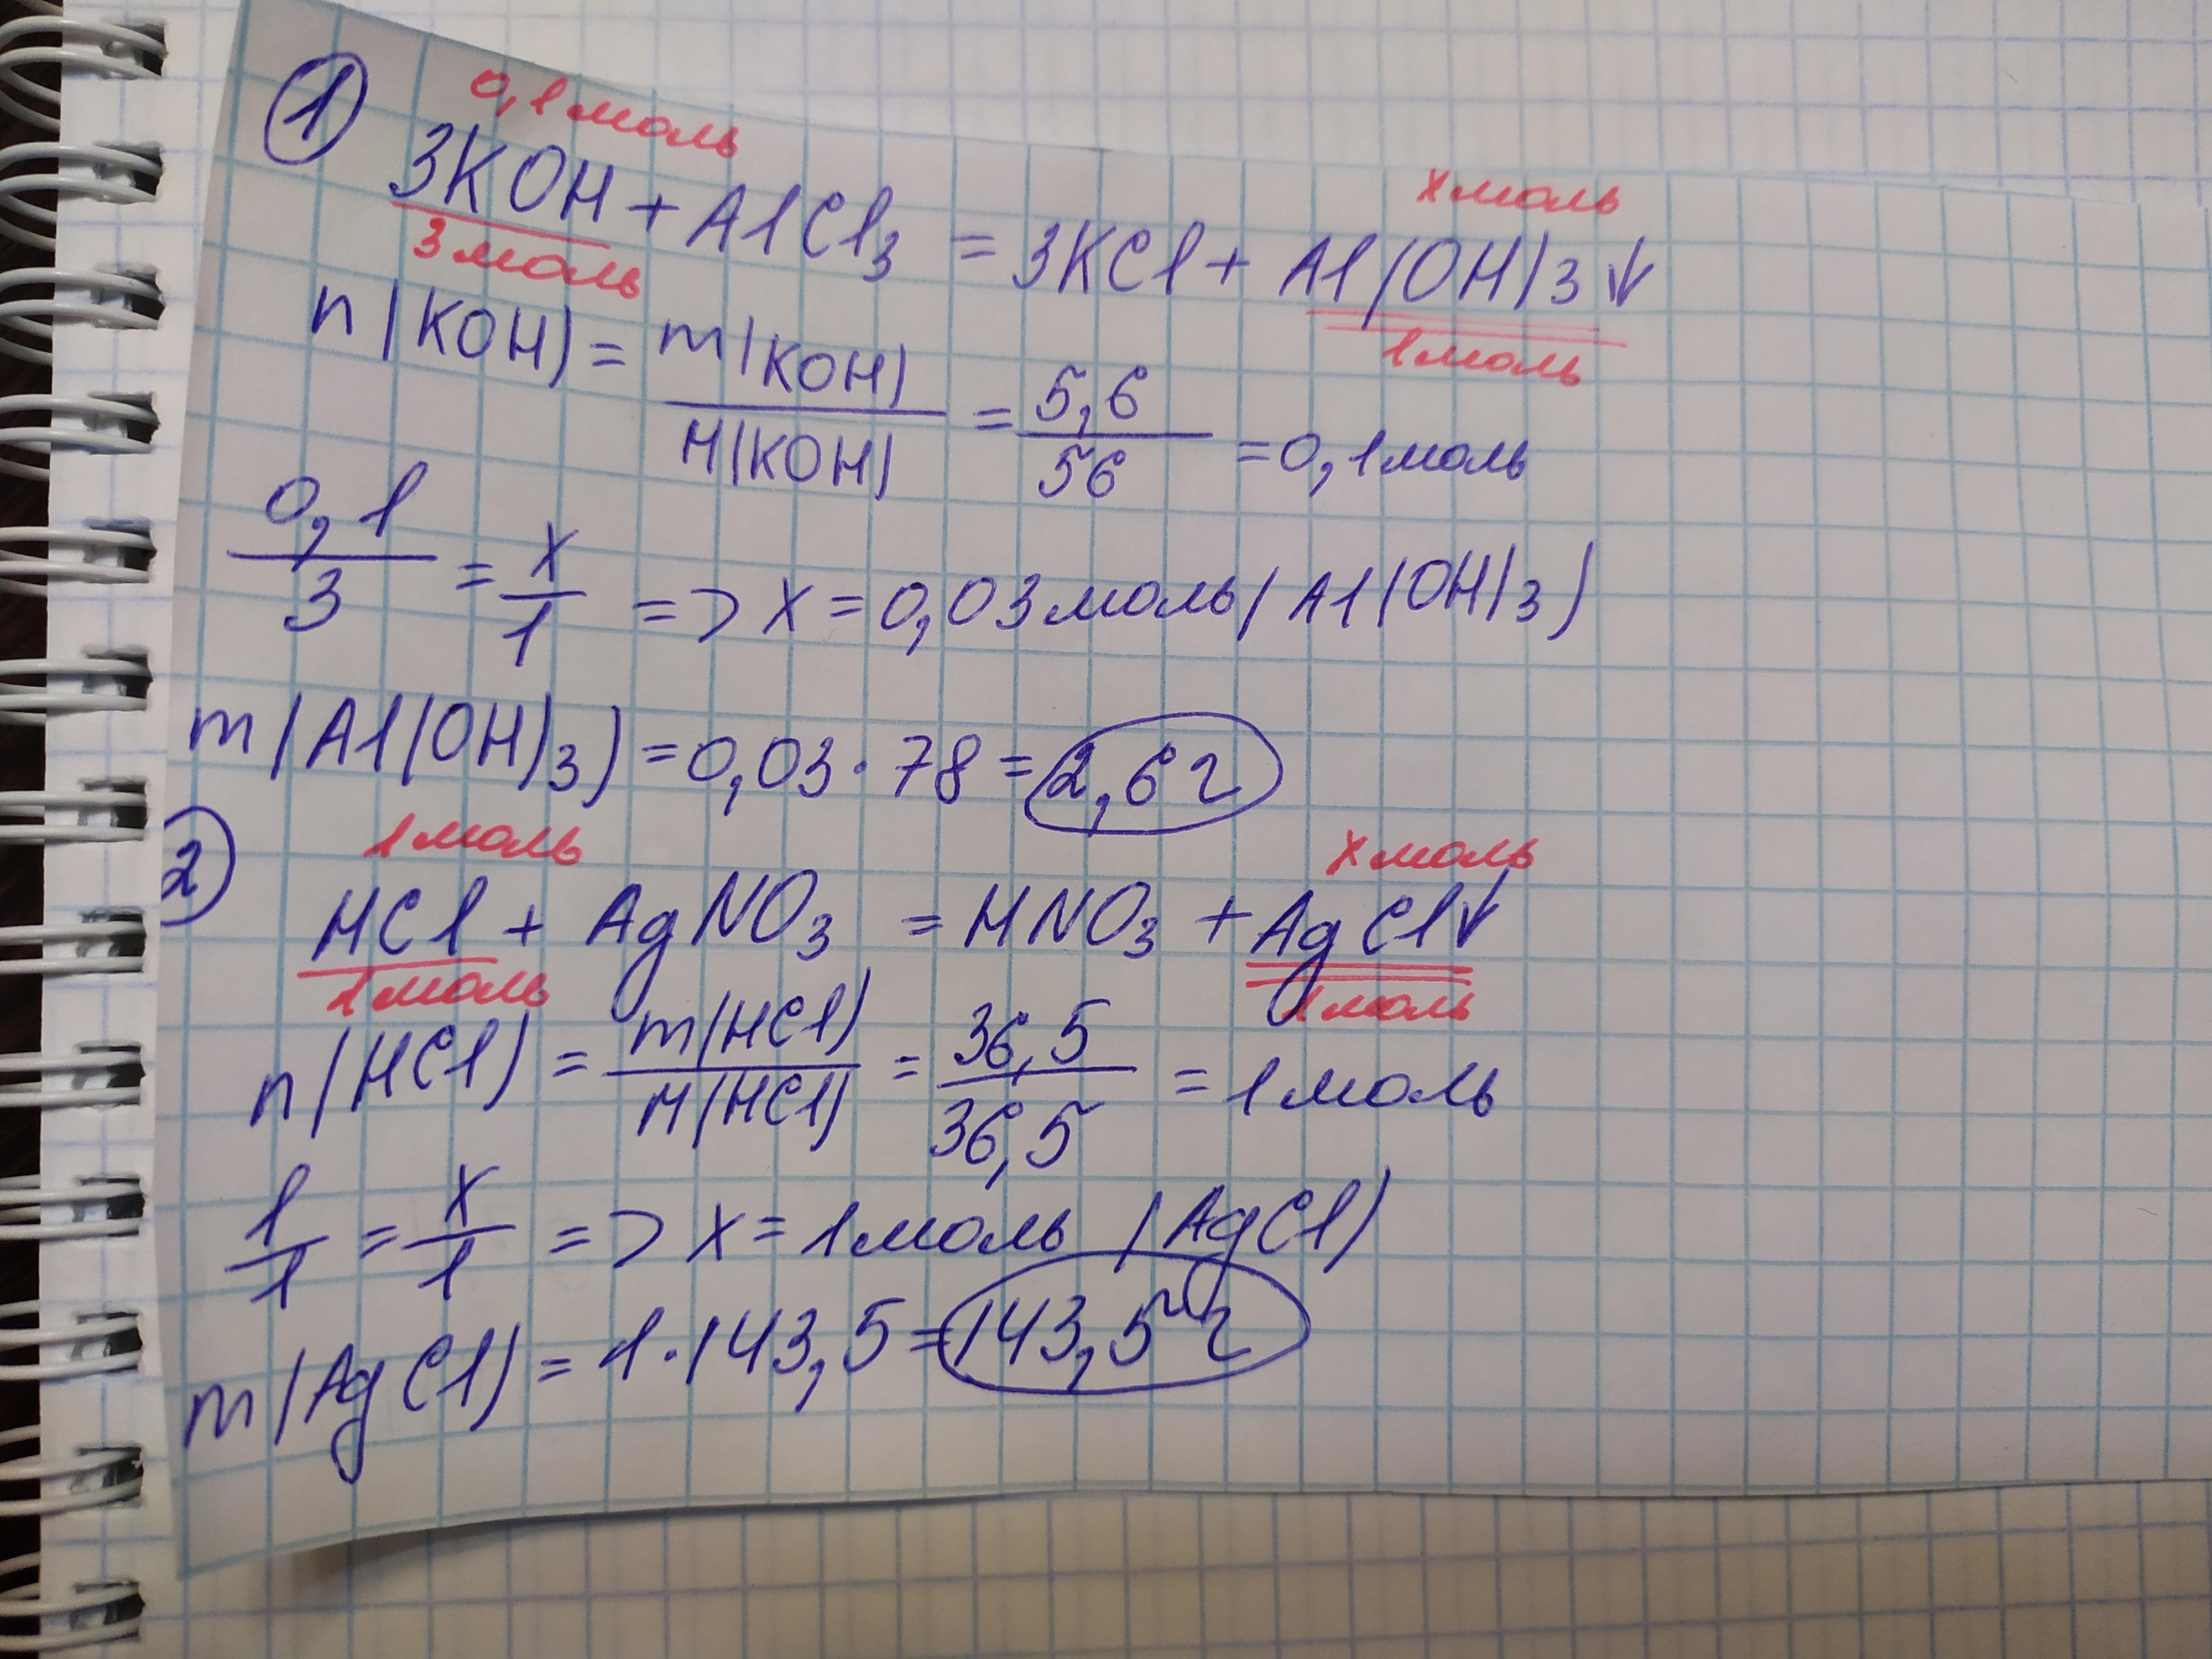 1
0,1 моль
x моль
3KOH + AlCl3 = 3KCl + Al(OH)3↓
3 моль
1 моль
n(KOH) = m(KOH)/M(KOH) = 5,6/56 = 0,1 моль
0,1/3 = x/1 => x = 0,03 моль (Al(OH)3)
m(Al(OH)3) = 0,03 · 78 = 2,6 г
2
1 моль
x моль
HCl + AgNO3 = HNO3 + AgCl↓
1 моль
1 моль
n(HCl) = m(HCl)/M(HCl) = 36,5/36,5 = 1 моль
1/1 = x/1 => x = 1 моль (AgCl)
m(AgCl) = 1 · 143,5 = 143,5 г